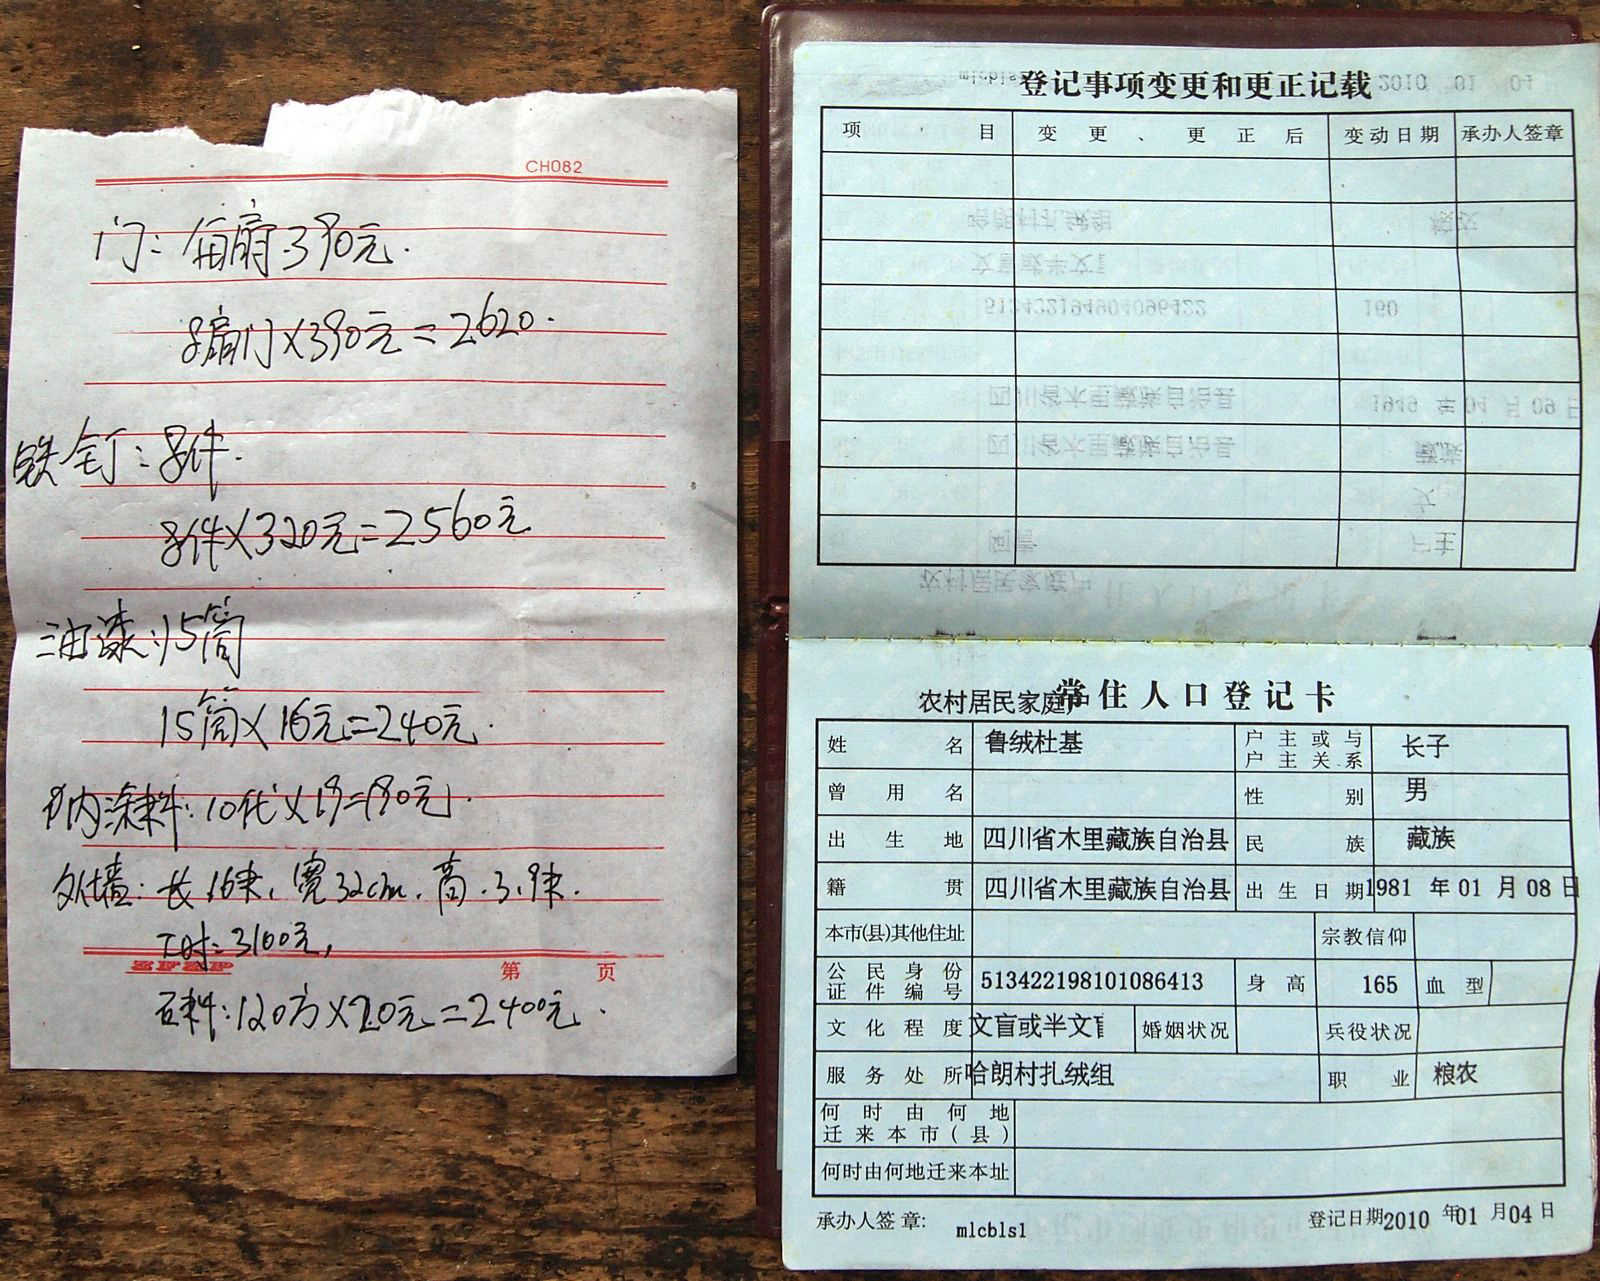 CH082
门：每扇390元.
8扇门×390元=2620.
铁钉：8件.
8件×320元=2560元
油漆：15筒
15筒×16元=240元.
内涂料：10代×18=180元.
外墙：长16米，宽32cm，高.3.9米.
工时：3100元，
第 页
石料：120方×20元=2400元.
登记事项变更和更正记载
项 目 变更、更正后 变动日期 承办人签章
农村居民家庭户
常住人口登记卡
姓名 鲁绒杜基 户主或与户主关系 长子
曾用名 性别 男
出生地 四川省木里藏族自治县 民族 藏族
籍贯 四川省木里藏族自治县 出生日期 1981 年 01 月 08 日
本市(县)其他住址 宗教信仰
公民身份证件编号 513422198101086413 身高 165 血型
文化程度 文盲或半文盲 婚姻状况 兵役状况
服务处所 哈朗村扎绒组 职业 粮农
何时由何地迁来本市(县)
何时由何地迁来本址
承办人签章: mlcblsl 登记日期 2010 年 01 月 04 日